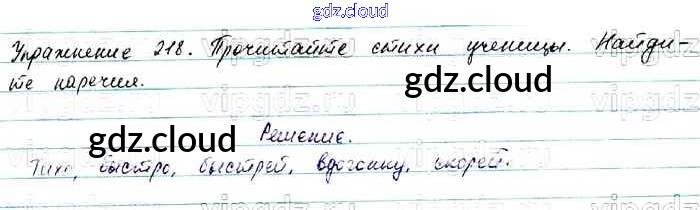 gdz.cloud
Упражнение 218. Прочитайте стихи ученицы. Найди-
те наречия.
gdz.cloud
gdz.cloud
Решение.
Тихо, быстро, быстрей, вдогонку, скорей.